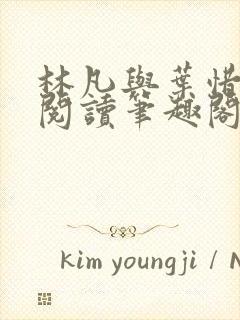 林凡與葉惜
閱讀筆趣閣
kim youngji / N